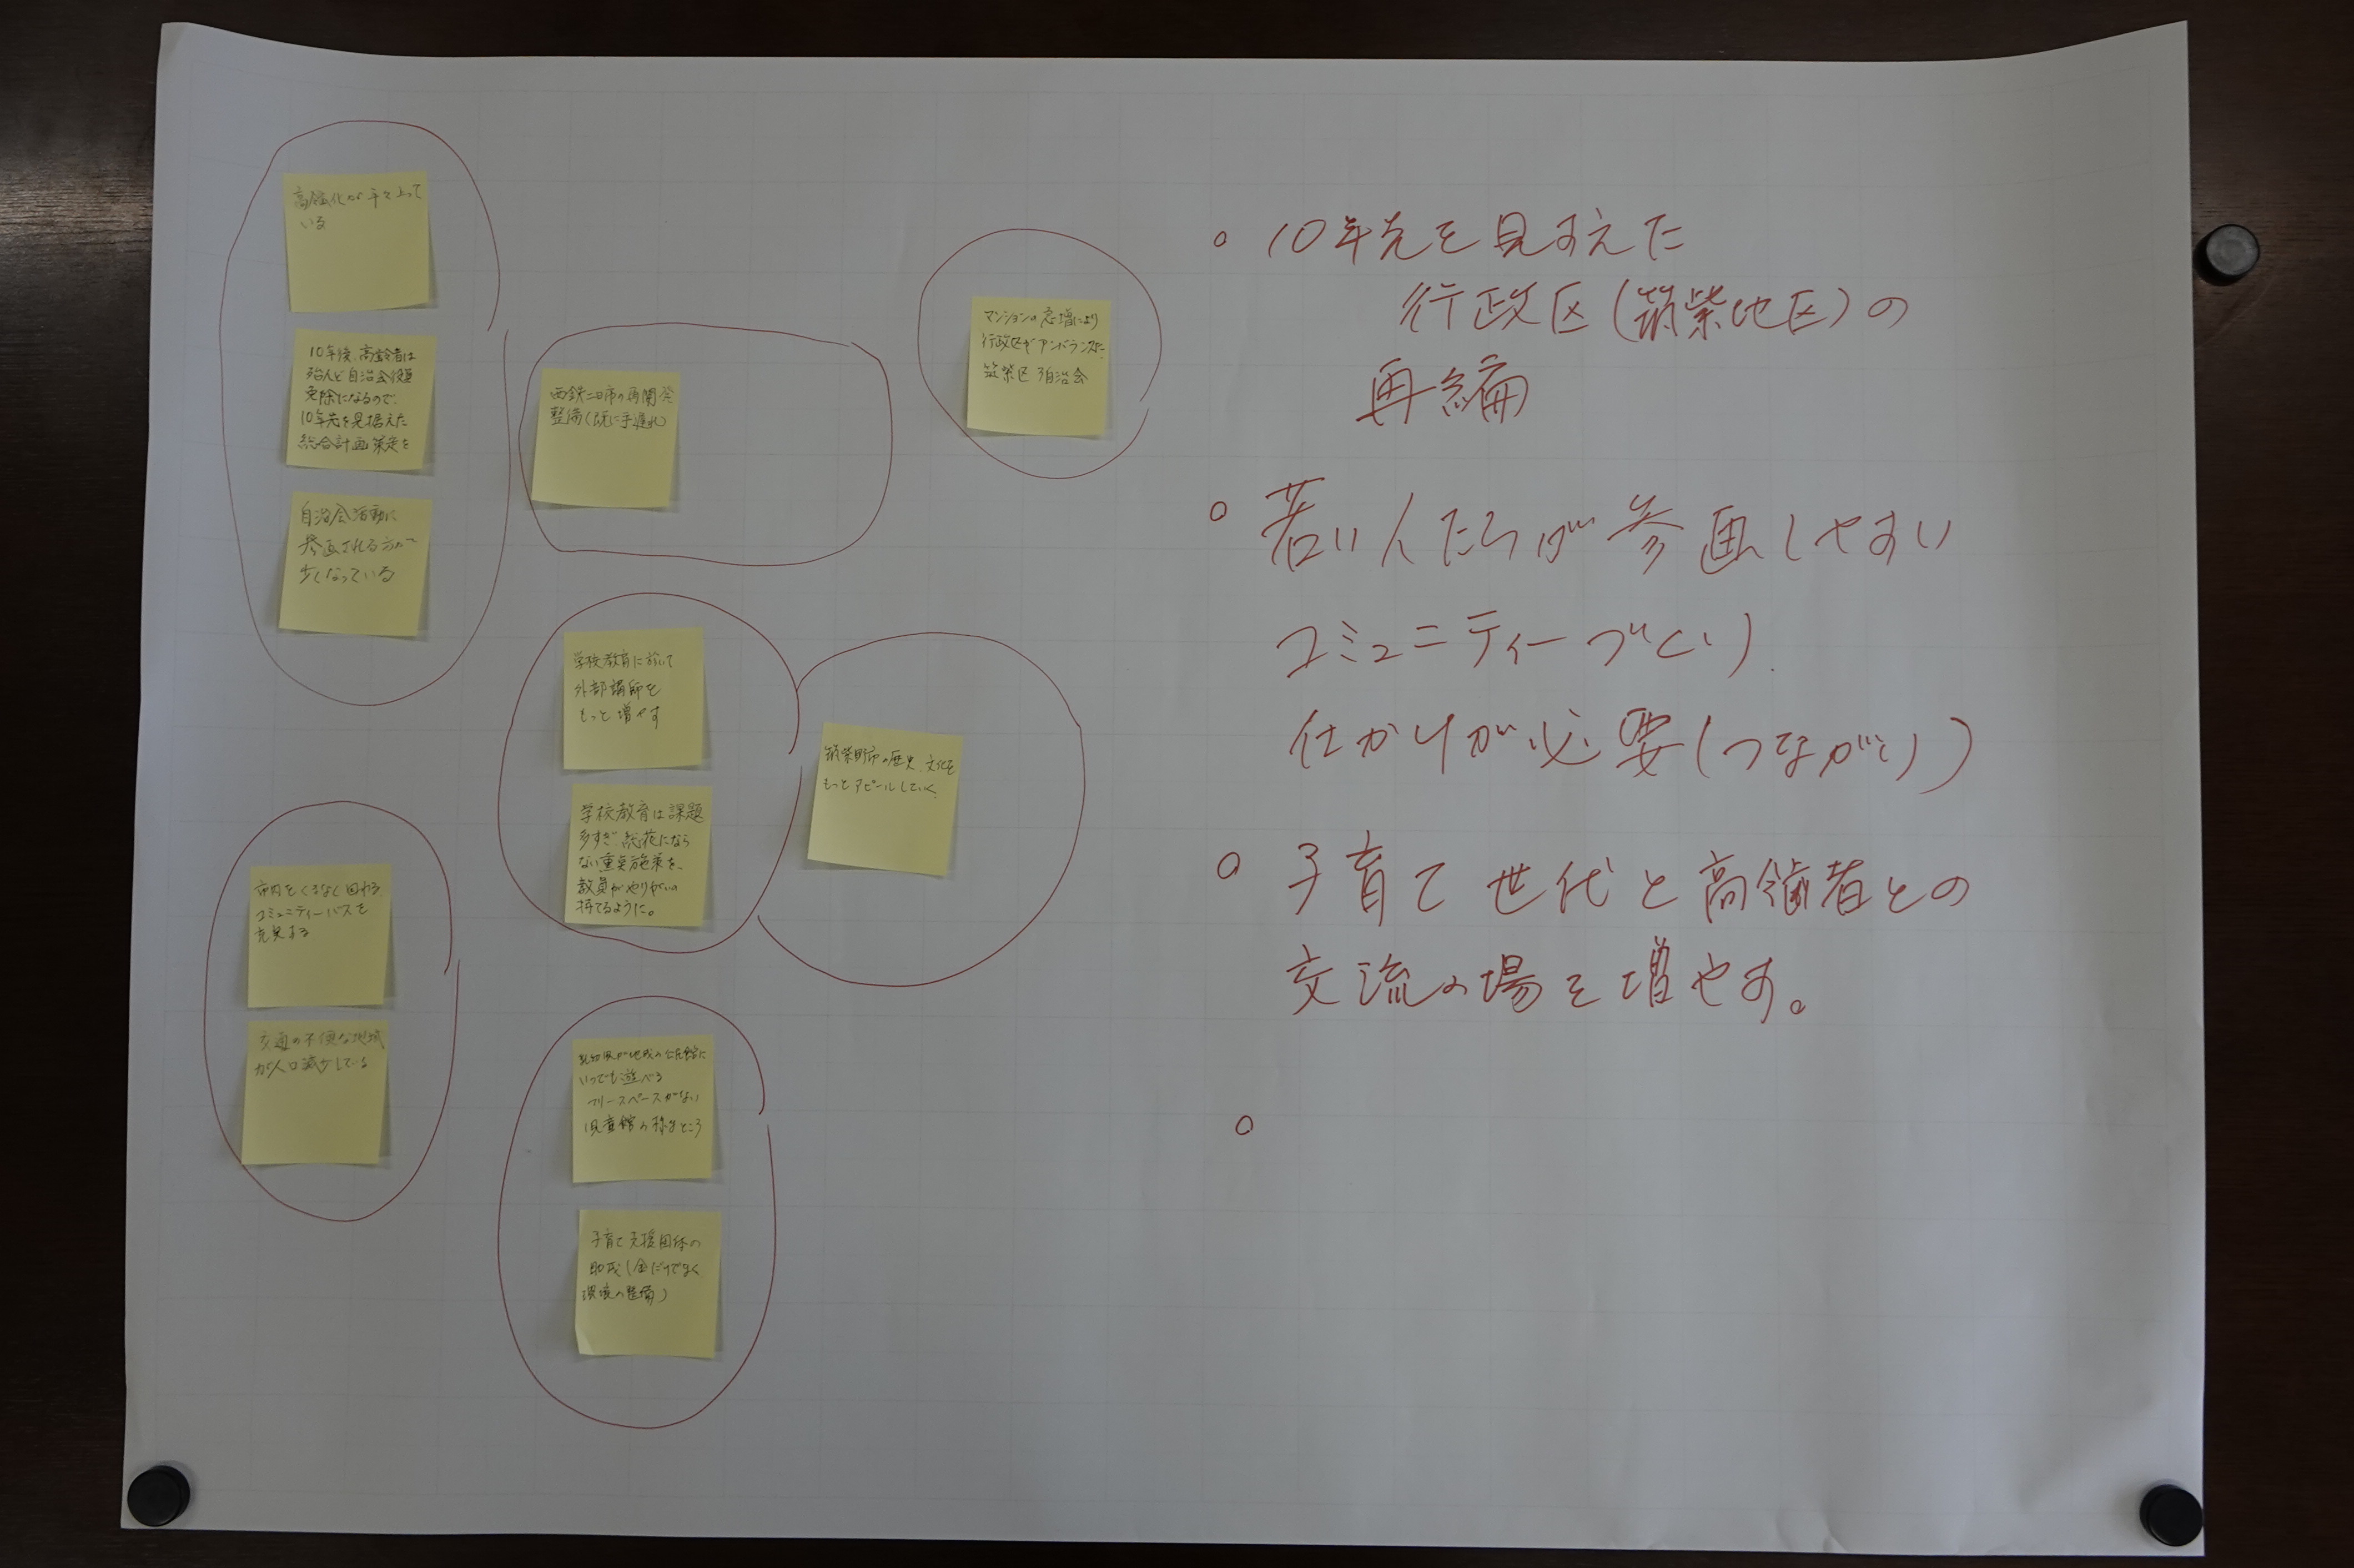 高齢化が年々上って
いる
10年後、高齢者は
殆んど自治会役員
免除になるので、
10年先を見据えた
総合計画策定を
自治会活動に
参画される方が
少くなっている
西鉄二日市の再開発
整備(既に手遅れ)
マンションの急増により
行政区がアンバランスに
筑紫区 自治会
学校教育に於いて
外部講師を
もっと増やす
学校教育は課題
多すぎ、総花になら
ない重点施策を、
教員がやりがいの
持てるように。
筑紫野市の歴史、文化を
もっとアピールしていく
市内をくまなく回れる
コミュニティーバスを
充実する
交通の不便な地域
が人口減少している
乳幼児が地域の公民館に
いつでも遊べる
フリースペースがない
児童館の様なところ
子育て支援団体の
助成(金だけでなく
環境の整備)
○ 10年先を見すえた
行政区(筑紫地区)の
再編
○ 若い人たちが参画しやすい
コミュニティーづくり
仕かけが必要(つながり)
○ 子育て世代と高齢者との
交流の場を増やす。
○